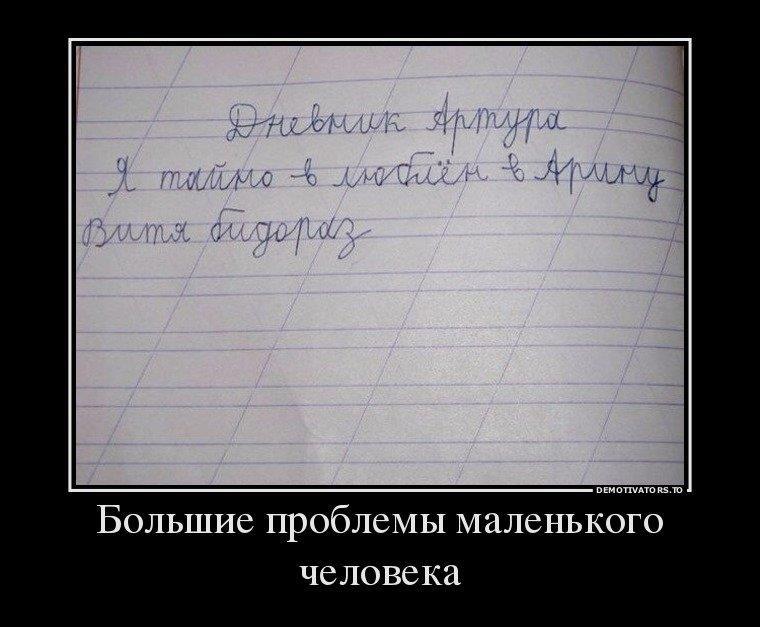 Дневник Артура
Я тайно в люблён в Арину
Витя бидораз
DEMOTIVATORS.TO
Большие проблемы маленького
человека